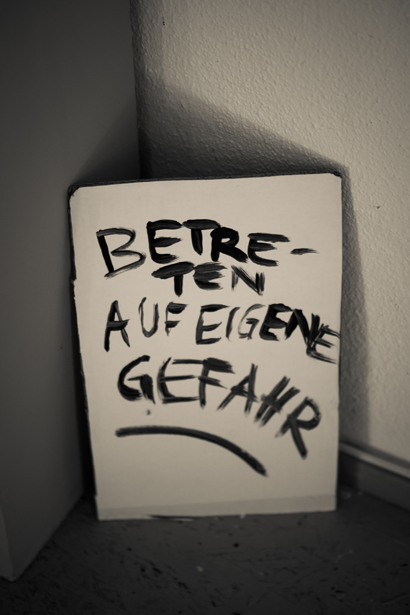 BETRE-
TEN
AUF EIGENE
GEFAHR